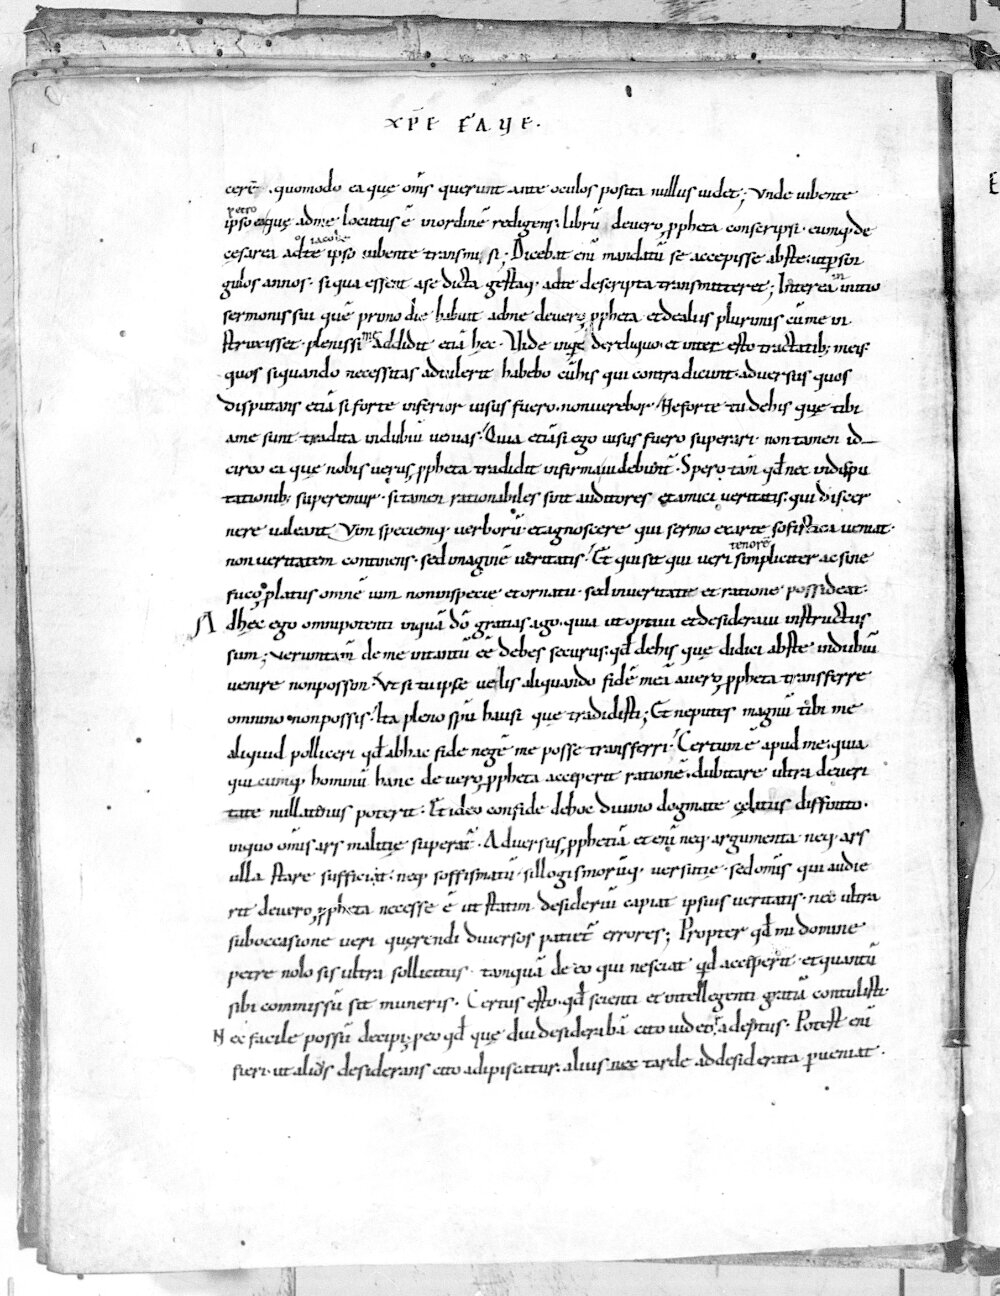 XPE FAUE.
cerē. quomodo ea quę om̄s querunt ante oculos posita nullus uidet; Unde iubente
petro
ipso eaquę ad me locutus ē in ordinē redigens librū de uero ꝓpheta conscripsi. eumq; de
iacobe
cęsarea ad te ipso iubente transmisi; Dicebat enī mandatū se accepisse abs te. ut per sin
gulos annos. si qua essent a se dicta gestaq; ad te descripta transmitteret; Interea in initio
sermonis sui quē primo die habuit ad me de uero ꝓpheta et de aliis plurimis cū me in
struxisset. plenissime addidit etiā hęc. Uide inquē de reliquo. et inter esto tractatib; meis.
quos si quando necessitas adtulerit habebo cū his qui contradicunt. aduersus quos
disputans etiā si forte inferior uisus fuero. non uerebor. Ne forte tu de his quę tibi
a me sunt tradita in dubiū uenias. Quia etiā si ego uisus fuero superari. non tamen id
circo ea quę nobis uerus ꝓpheta tradidit infirma uidebunt̄. Spero tam̄ qd̄ nec in dispu
tationib; superemur. si tamen rationabiles sint auditores et amici ueritatis. qui discer
nere ualeant uim speciemq; uerborū. et agnoscere qui sermo ex arte sofistica ueniat.
non ueritatem continens. sed imaginē ueritatis. Et qui sit qui ueri simpliciter ac sine
tenorē
fuco ꝓlatus omnē uim non in specie et ornatu. sed in ueritate et ratione possideat.
Ad hęc ego omnipotenti inquā dō gratias ago. quia ut optaui et desideraui instructus
sum; Ueruntam̄ de me intantū eē debes securus. qd̄ de his quę didici abs te in dubiū
uenire non possim. Ut si tu ipse uelis aliquando fidē meā a uero ꝓpheta transferre
omnino non possis. Ita pleno spū hausi quę tradidisti; Et ne putes magnū tibi me
aliquid polliceri qd̄ ab hac fide negē me posse transferri. Certum ē apud me. quia
quicumq; hominū hanc de uero ꝓpheta acceperit rationē. dubitare ultra de ueri
tate nullatenus poterit. Et ideo confide de hoc diuino dogmate cęlitus diffinito.
in quo om̄is ars malitię superat̄. Aduersus ꝓphetiā et enī neq; argumenta neq; ars
ulla stare sufficiat. neq; soffismatū. sillogismorūq; uersutię. sed om̄is qui audie
rit de uero ꝓpheta necesse ē ut statim desideriū capiat ipsius ueritatis. nec ultra
sub occasione ueri quęrendi diuersos patiet̄ errores; Propter qd̄ mi domine
petre nolo sis ultra sollicitus. tanquā de eo qui nesciat quid acceperit. et quantū
sibi commissū sit muneris. Certus esto. qd̄ scienti et intellegenti gratiā contulisti.
Nec facile possū decipi. ꝓ eo qd̄ quę diu desiderabā cito uideor adeptus. Potest enī
fieri. ut alius desiderans cito adipiscatur. alius nec tarde ad desiderata ꝑueniat.